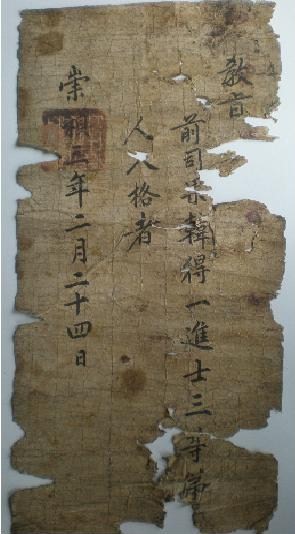 敎旨
前司果韓得一進士三等第
人入格者
崇禎五年二月二十四日